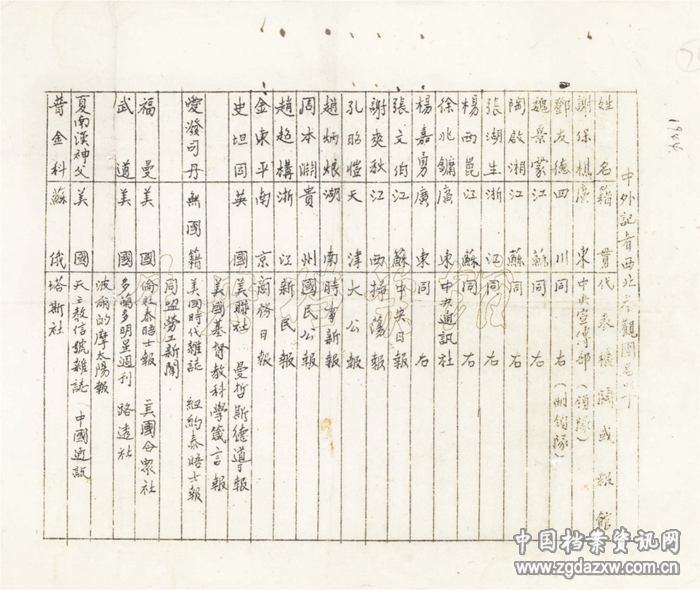 1944
中外記者西北參觀團名單
姓名 籍貫 代表機關或報館
謝保樵 廣東 中央宣傳部（領隊）
鄧友德 四川 同右（副領隊）
魏景蒙 浙江 同右
陶啟湘 江蘇 同右
張湖生 浙江 同右
楊西崑 江蘇 同右
徐兆鏞 廣東 中央通訊社
楊嘉勇 廣東 同右
張文伯 江蘇 中央日報
謝爽秋 江西 掃蕩報
孔昭愷 天津 大公報
趙炳烺 湖南 時事新報
周本淵 貴州 國民公報
趙超構 浙江 新民報
金東平 南京 商務日報
史坦因 英國 美聯社 曼哲斯德導報
美國基督教科學箴言報
愛潑司丹 無國籍 美國時代雜誌 紐約泰晤士報
同盟勞工新聞
福曼 美國 倫敦泰晤士報 美國合眾社
武道 美國 多嶋多明星週刊 路透社
波爾的摩太陽報
夏南漢神父 美國 天主教信號雜誌 中國通訊
普金科 蘇俄 塔斯社
中国档案资讯网
www.zgdazxw.com.cn